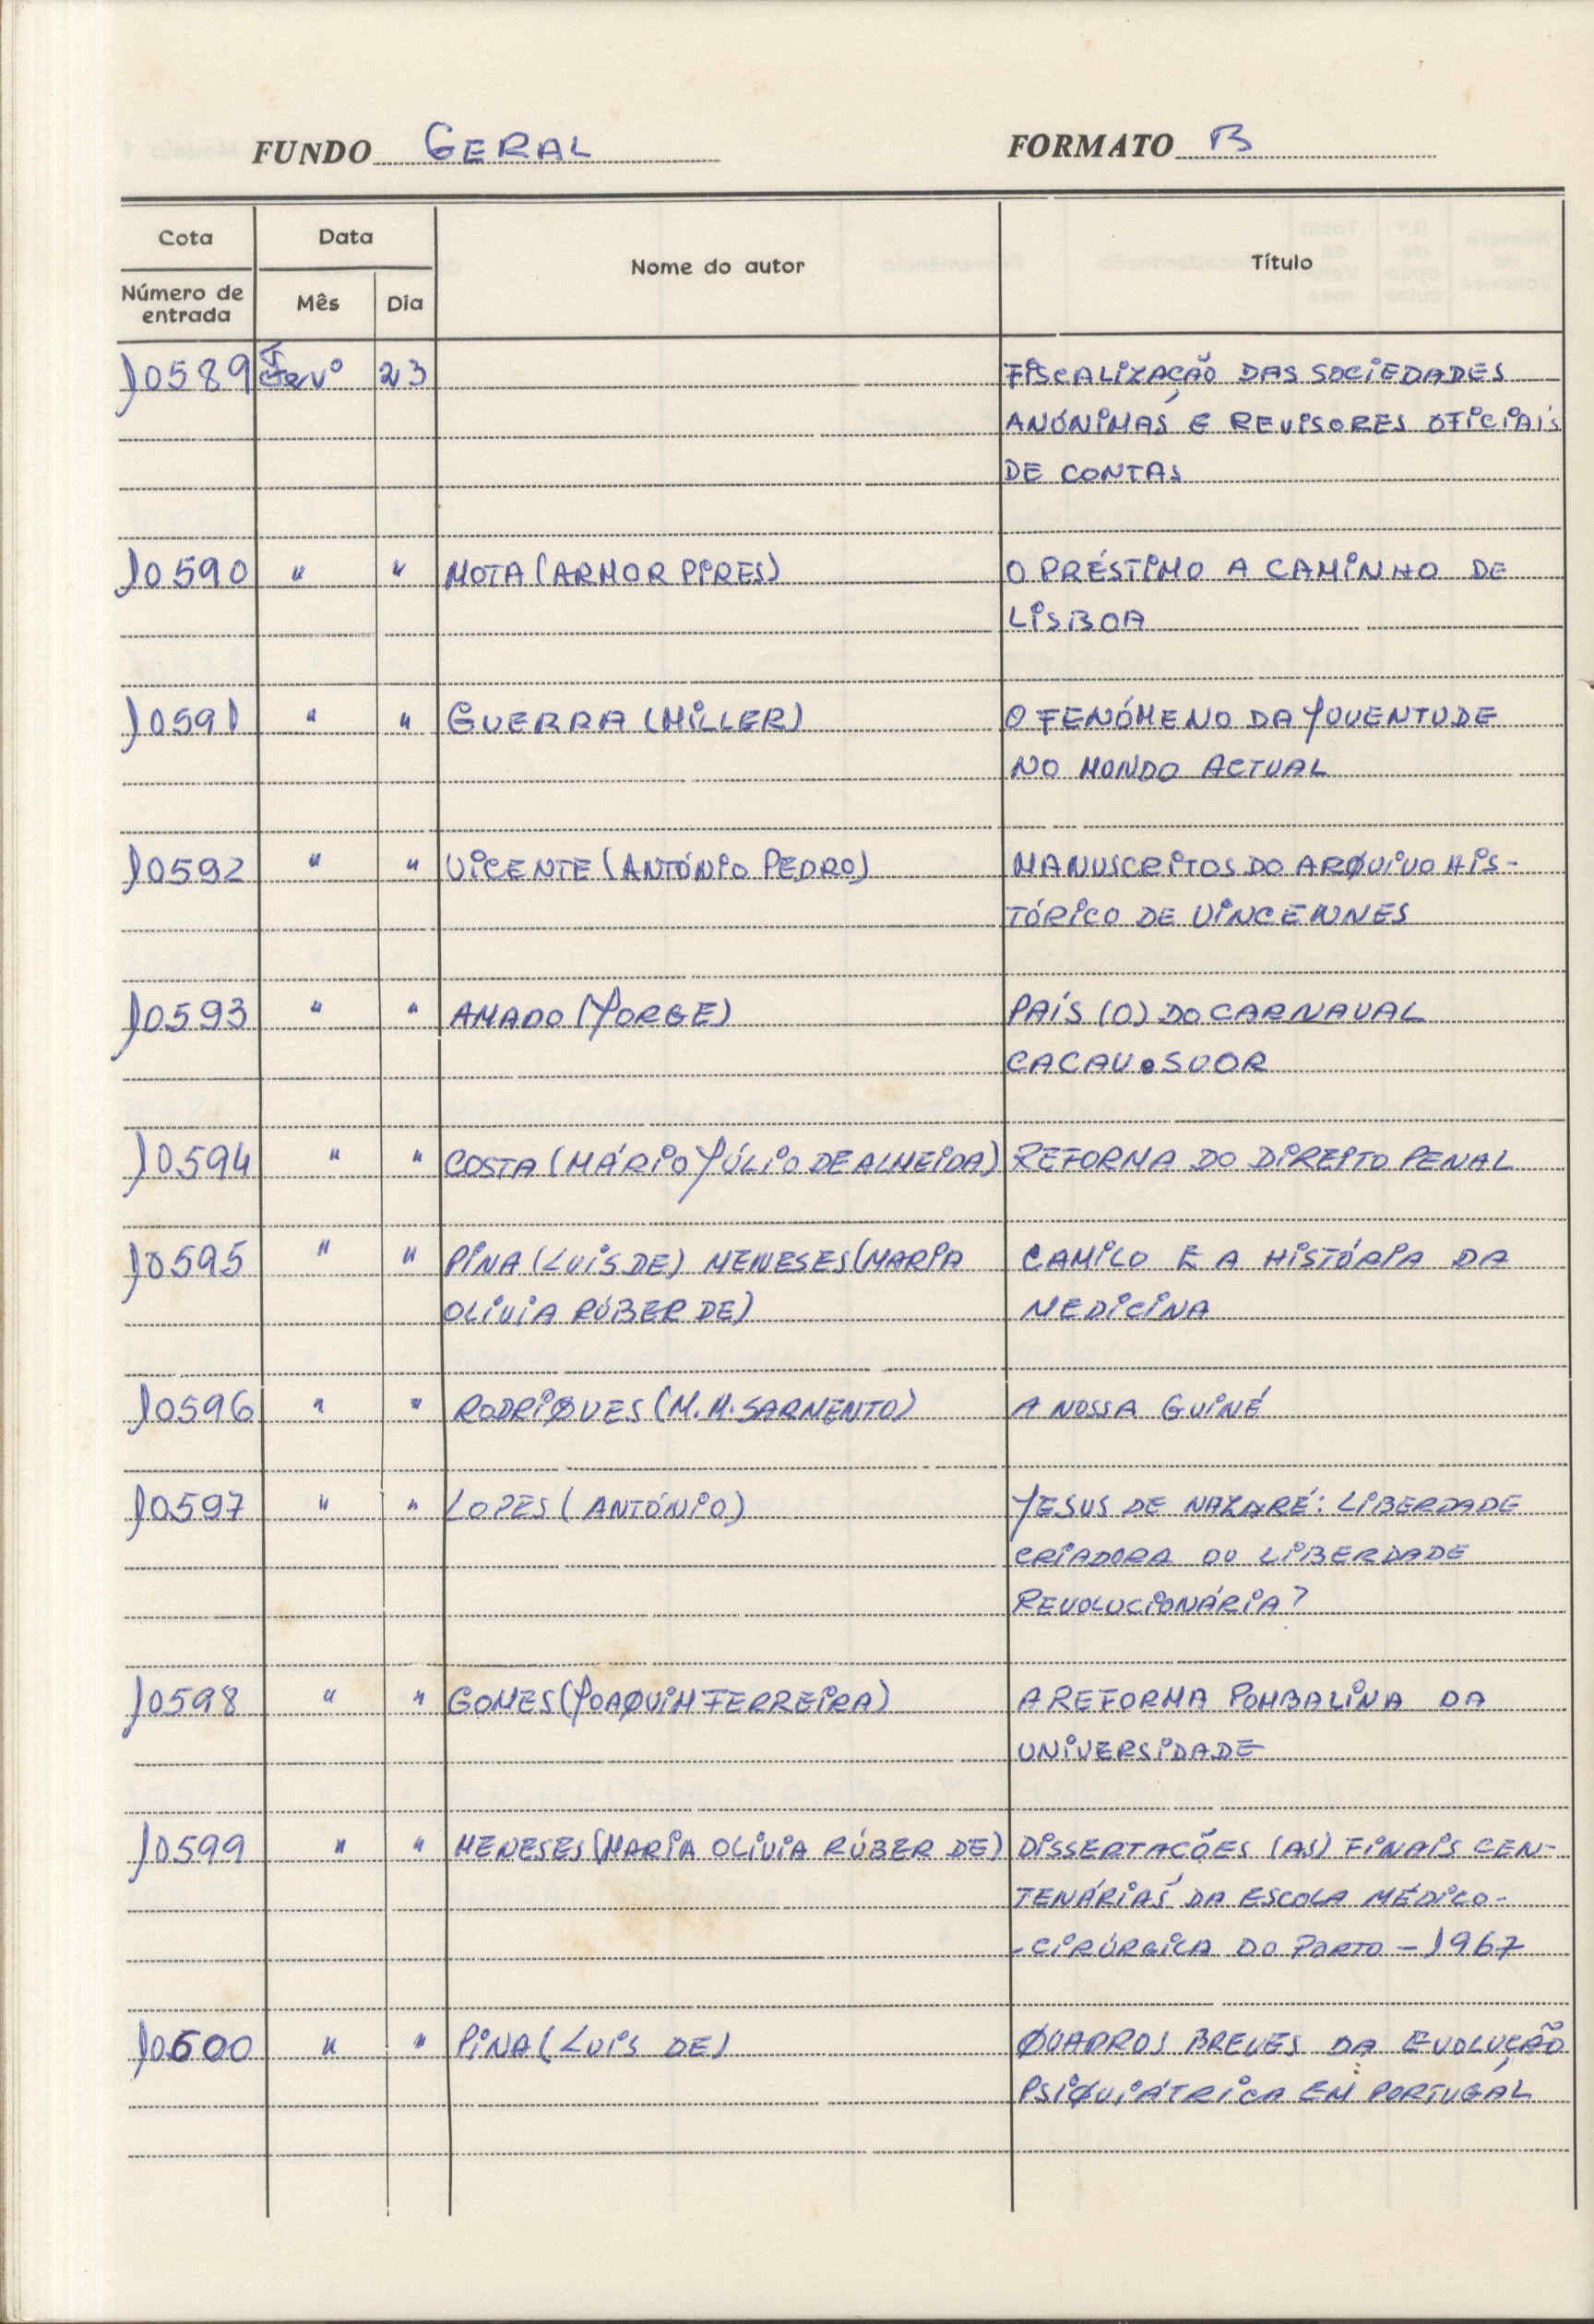 FUNDO GERAL FORMATO B
Cota Data Nome do autor Título
Número de entrada Mês Dia
10589 Fevº 23 FISCALIZAÇÃO DAS SOCIEDADES
ANÓNIMAS E REVISORES OFICIAIS
DE CONTAS
10590 " " MOTA (ARMOR PIRES) O PRÉSTIMO A CAMINHO DE
LISBOA
10591 " " GUERRA (MILLER) O FENÓMENO DA JUVENTUDE
NO MUNDO ACTUAL
10592 " " VICENTE (ANTÓNIO PEDRO) MANUSCRITOS DO ARQUIVO HIS-
TÓRICO DE VINCENNES
10593 " " AMADO (JORGE) PAÍS (O) DO CARNAVAL
CACAU • SUOR
10594 " " COSTA (MÁRIO JÚLIO DE ALMEIDA) REFORMA DO DIREITO PENAL
10595 " " PINA (LUIS DE) MENESES (MARIA CAMILO E A HISTÓRIA DA
OLIVIA RÚBER DE) MEDICINA
10596 " " RODRIGUES (M. M. SARMENTO) A NOSSA GUINÉ
10597 " " LOPES (ANTÓNIO) JESUS DE NAZARÉ: LIBERDADE
CRIADORA OU LIBERDADE
REVOLUCIONÁRIA?
10598 " " GOMES (JOAQUIM FERREIRA) A REFORMA POMBALINA DA
UNIVERSIDADE
10599 " " MENESES (MARIA OLIVIA RÚBER DE) DISSERTAÇÕES (AS) FINAIS CEN-
TENÁRIAS DA ESCOLA MÉDICO-
-CIRÚRGICA DO PORTO - 1967
10600 " " PINA (LUIS DE) QUADROS BREVES DA EVOLUÇÃO
PSIQUIÁTRICA EM PORTUGAL